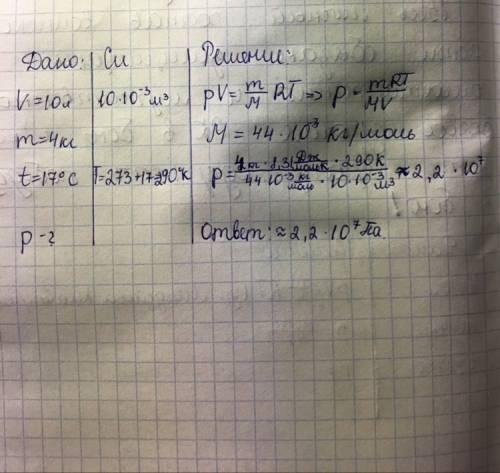 Дано: Си Решение:
V=10л 10·10⁻³м³ pV = m/M RT => p = mRT/MV
m=4кг M = 44·10⁻³ кг/моль
t=17°C T=273+17=290°K p = 4кг·8,31 Дж/моль·К · 290К / 44·10⁻³ кг/моль · 10·10⁻³ м³ ≈ 2,2·10⁷
p-? Ответ: ≈2,2·10⁷ Па.